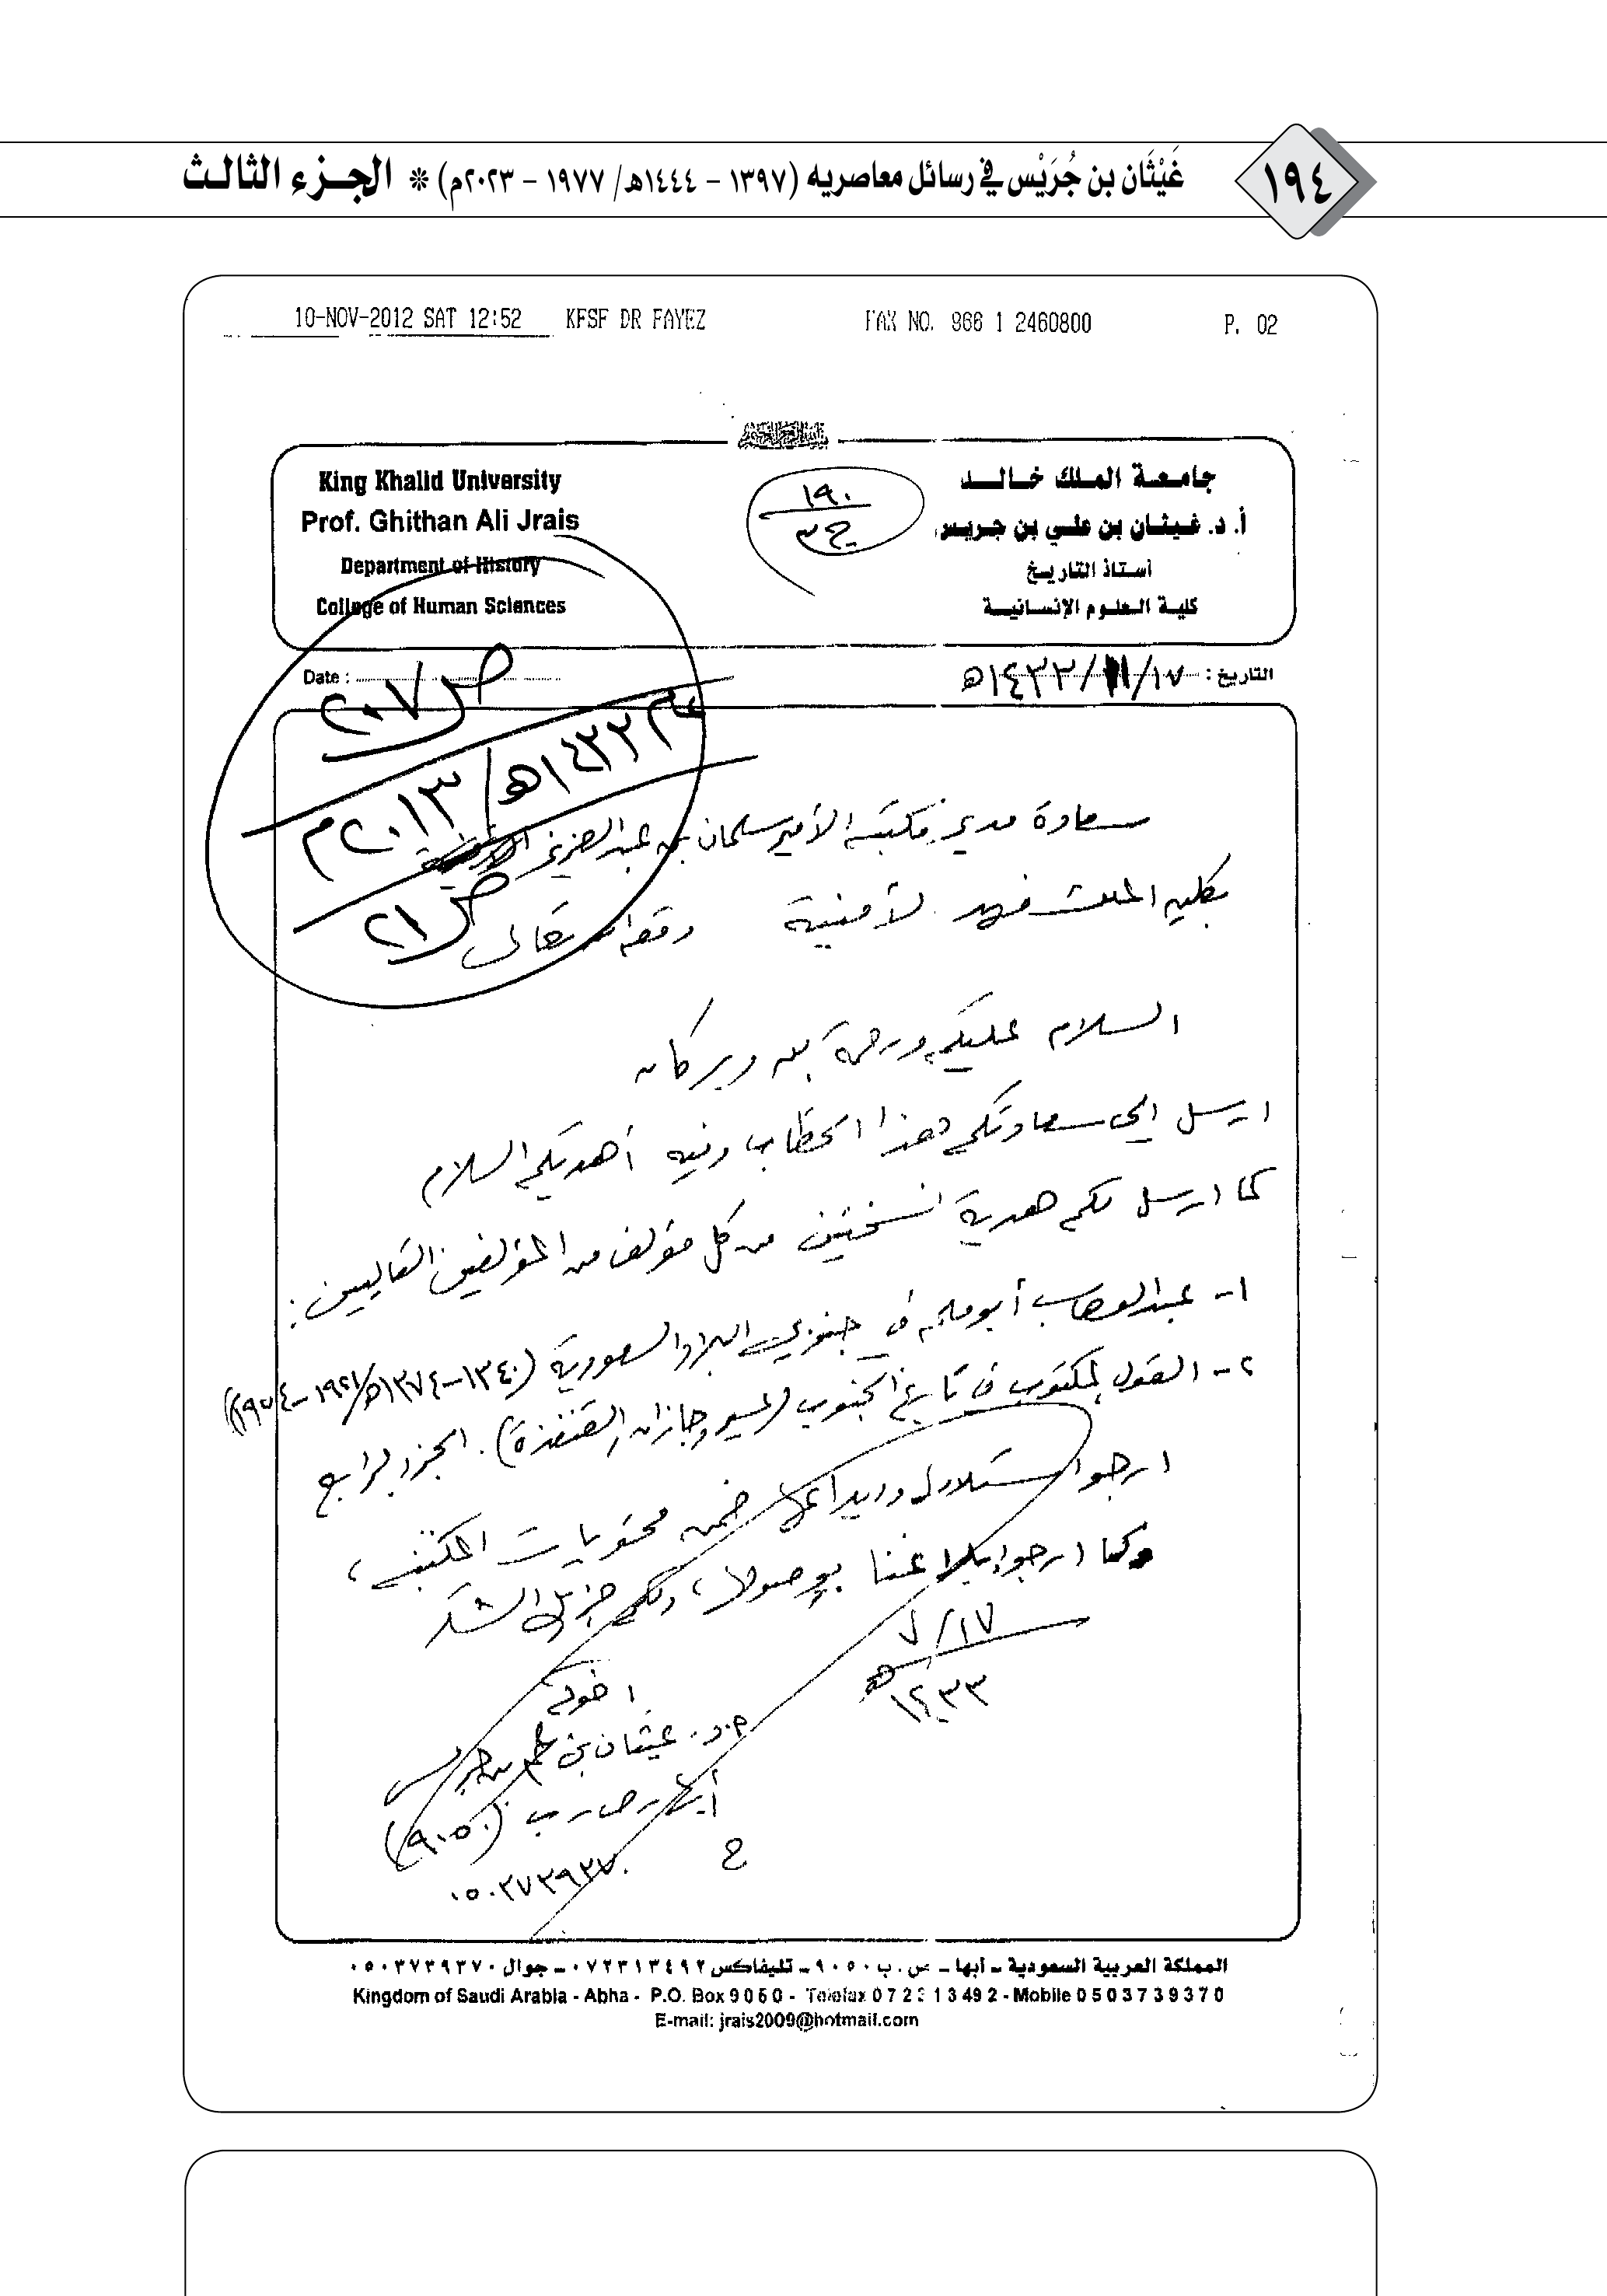 ١٩٤
غَيْثَان بن جُرَيْس في رسائل معاصريه (١٣٩٧ – ١٤٤٤هـ/ ١٩٧٧ – ٢٠٢٣م) * الجزء الثالث
10-NOV-2012 SAT 12:52 KFSF DR FAYEZ FAX NO. 966 1 2460800 P. 02
جامعة الملك خالد
أ. د. غيثان بن علي بن جريس
أستاذ التاريخ
كلية العلوم الإنسانية
١٩٠
ج٣
King Khalid University
Prof. Ghithan Ali Jrais
Department of History
College of Human Sciences
التاريخ : ١٧/١١/١٤٣٣هـ
Date :
ص٢٠٧
١٤٣٣هـ/٢٠١٣م
ص٢١
سعادة مدير مكتبة الأمير سلمان بن عبدالعزيز
بكلية الملك فهد الأمنية وفقه الله تعالى
السلام عليكم ورحمة الله وبركاته
ارسل الى سعادتكم هذا الخطاب وفيه أهديكم السلام
كما ارسل لكم هدية نسختين من كل مؤلف من المؤلفين التاليين :
١- عبدالوهاب أبو ملحه في جنوبي البلاد السعودية (١٣٤٠-١٣٧٤هـ/١٩٢١-١٩٥٤م)
٢- القول المكتوب في تاريخ الجنوب (عسير وجازان والقنفذة). الجزء الرابع
ارجو استلامها وايداعها ضمن محتويات المكتبة ،
وكما ارجو ابلاغنا بوصولها ، ولكم جزيل الشكر
١٧/٧
١٤٣٣هـ
اخوكم
أ.د. غيثان بن علي بن جريس
أبها . ص . ب (٩٠٥٠)
ج ٠٥٠٣٧٣٩٣٧٠
المملكة العربية السعودية ـ أبها ـ ص . ب ٩٠٥٠ ـ تليفاكس ٠٧٢٣١٣٤٩٢ ـ جوال ٠٥٠٣٧٣٩٣٧٠
Kingdom of Saudi Arabia - Abha - P.O. Box 9050 - Telefax 072313492 - Mobile 0503739370
E-mail: jrais2009@hotmail.com